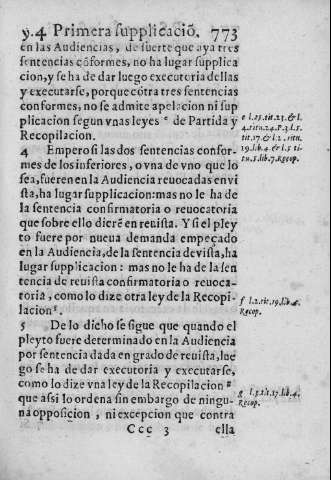 y.4 Primera supplicaciõ. 773
en las Audiencias, de suerte que aya tres
sentencias cõformes, no ha lugar supplica
cion, y se ha de dar luego executoria dellas
y executarse, porque cõtra tres sentencias
conformes, no se admite apelacion ni sup
plicacion segun vnas leyes e de Partida y
Recopilacion.
e l.25.tit.23.& l.
4.titu.24.P.3.l.5.
tit.17.& l.2.titu.
19.lib.4 & l.5 ti-
tu.5.lib.7.Recop.
4 Empero si las dos sentencias confor-
mes de los inferiores, o vna de vno que lo
sea, fueren en la Audiencia reuocadas en vi
sta, ha lugar supplicacion: mas no le ha de
la sentencia confirmatoria o reuocatoria
que sobre ello dierẽ en reuista. Y si el pley
to fuere por nueua demanda empeçado
en la Audiencia, de la sentencia de vista, ha
lugar supplicacion: mas no le ha de la sen
tencia de reuista confirmatoria o reuoca-
toria, como lo dize otra ley de la Recopi-
lacion f.
f l.2.tit.19.lib.4.
Recop.
5 De lo dicho se sigue que quando el
pleyto fuere determinado en la Audiencia
por sentencia dada en grado de reuista, lue
go se ha de dar executoria y executarse,
como lo dize vna ley de la Recopilacion g
que assi lo ordena sin embargo de ningu-
na opposicion, ni excepcion que contra
g l.5.tit.17.lib.4.
Recop.
Ccc 3 ella